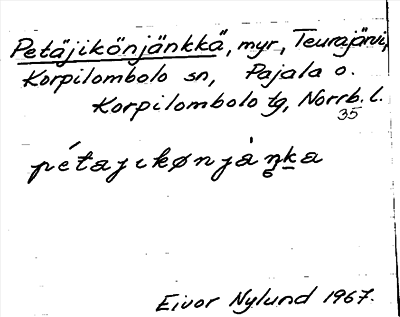 Petäjikönjänkkä, myr, Teurajärvi,
Korpilombolo sn, Pajala o.
Korpilombolo tg, Norrb. l.
35
pétajıkønjàṇka
6
Eivor Nylund 1967.